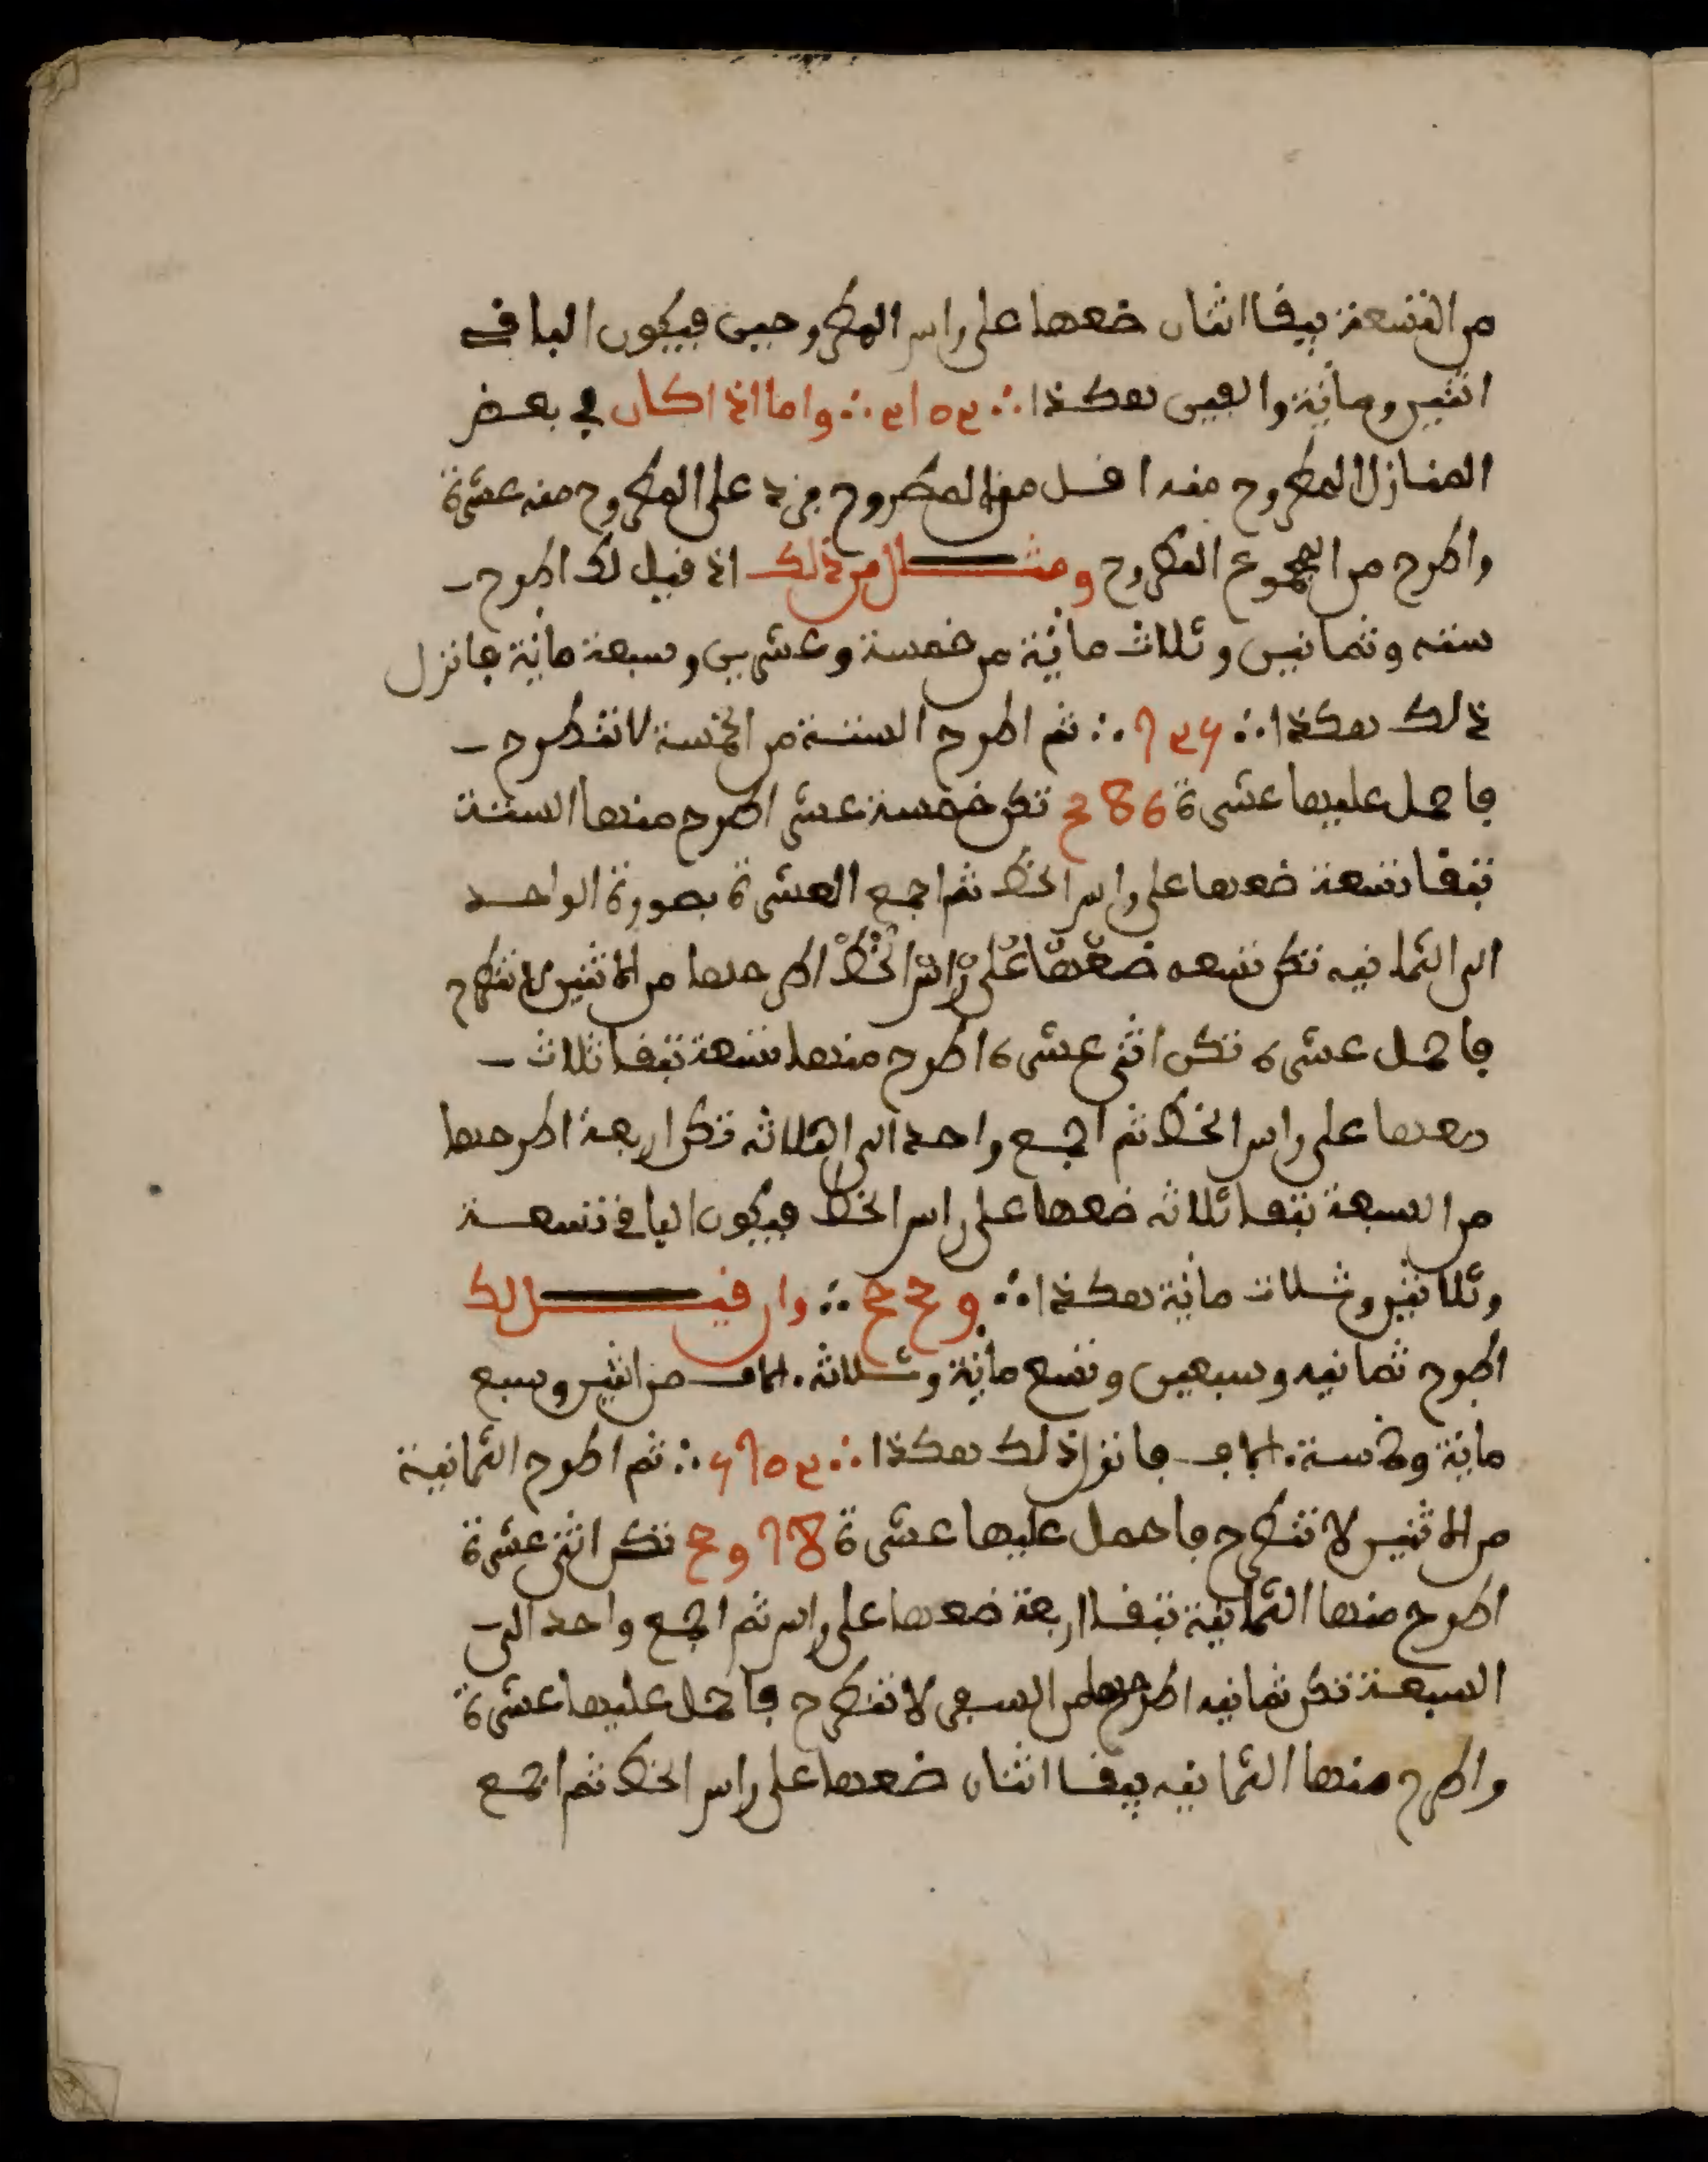 من التسعة يبقا اثنان ضعها على راس المطروحين فيكون الباقي
اثنين ومائة والفين هكذا ∴ 2102 ∴ واما اذا كان في بعض
المنازل المطروح منه اقل من المطروح فزد على المطروح منه عشرة
واطرح من المجموع المطروح ومثال من ذلك اذ قيل لك اطرح
ستة وثمانين وثلاث مائة من خمسة وعشرين وسبعة مائة فانزل
ذلك هكذا ∴ 725 ∴ ثم اطرح الستة من الخمسة لا تنطرح
فاحمل عليها عشرة 386 تكن خمسة عشر اطرح منها الستة
تبقا تسعة ضعها على راس الخط ثم اجمع العشرة بصورة الواحد
الى الثمانيه تكن تسعه ضعها على راس الخط اطرحها من الاثنين لا تنطرح
فاحمل عشرة تكن اثنى عشرة اطرح منها تسعة تبقا ثلاث
ضعها على راس الخط ثم اجمع واحد الى الثلاثه تكن اربعة اطرحها
من السبعة تبقا ثلاثه ضعها على راس الخط فيكون الباقي تسعة
وثلاثين وثلاث مائة هكذا ∴ 339 ∴ وان قيل لك
اطرح ثمانيه وسبعين وتسع مائة وثلاثه الاف من اثنين وسبع
مائة وخمسة الاف فانزل ذلك هكذا ∴ 5702 ∴ ثم اطرح الثمانية
من الاثنين لا تنطرح فاحمل عليها عشرة 3978 تكن اثنى عشرة
اطرح منها الثمانية تبقا اربعة ضعها على راس ثم اجمع واحد الى
السبعة تكن ثمانيه اطرحها من السفر لا تنطرح فاحمل عليها عشرة
واطرح منها الثمانيه يبقا اثنان ضعها على راس الخط ثم اجمع